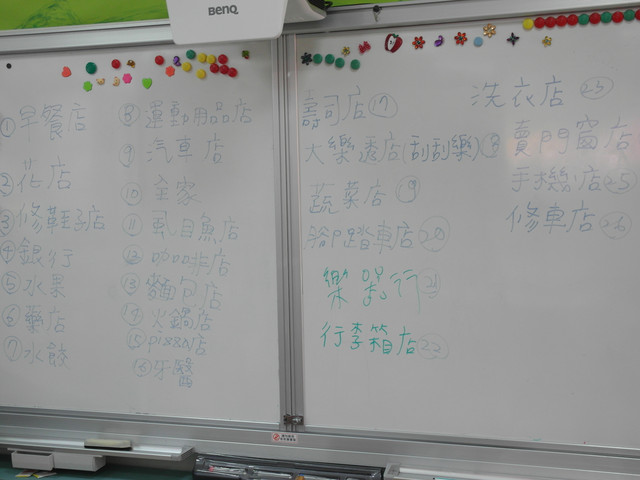 BENQ
①早餐店
②花店
③修鞋子店
④銀行
⑤水果
⑥藥店
⑦水餃
⑧運動用品店
⑨汽車店
⑩全家
⑪虱目魚店
⑫咖啡店
⑬麵包店
⑭火鍋店
⑮pizza店
⑯牙醫
壽司店⑰
大樂透店(刮刮樂)⑱
蔬菜店⑲
腳踏車店⑳
樂器行㉑
行李箱店㉒
洗衣店
賣門窗店
手機店㉕
修車店㉖